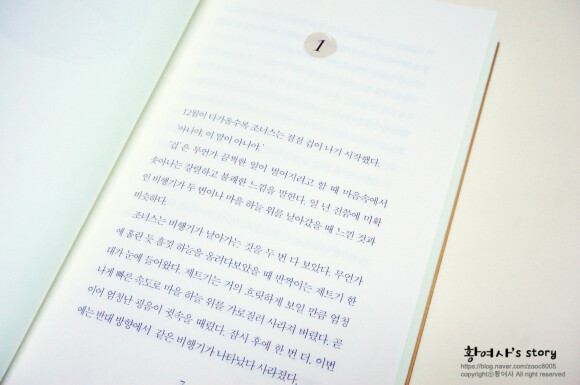 1
12월이 다가올수록 조너스는 점점 겁이 나기 시작했다.
'아니야, 이 말이 아니야.'
'겁'은 무언가 끔찍한 일이 벌어지려고 할 때 마음속에서
솟아나는 강렬하고 불쾌한 느낌을 말한다. 일 년 전쯤에 미확
인 비행기가 두 번이나 마을 하늘 위를 날아갔을 때 느낀 것과
비슷하다.
조너스는 비행기가 날아가는 것을 두 번 다 보았다. 무언가
에 홀린 듯 흘깃 하늘을 올려다보았을 때 반짝이는 제트기 한
대가 눈에 들어왔다. 제트기는 거의 흐릿하게 보일 만큼 엄청
나게 빠른 속도로 마을 하늘 위를 가로질러 사라져 버렸다. 곧
이어 엄청난 굉음이 귓속을 때렸다. 잠시 후에 한 번 더, 이번
에는 반대 방향에서 같은 비행기가 나타났다 사라졌다.
7
황여사's story
https://blog.naver.com/zooc8005
copyrightⓒ황여사 All right reserved